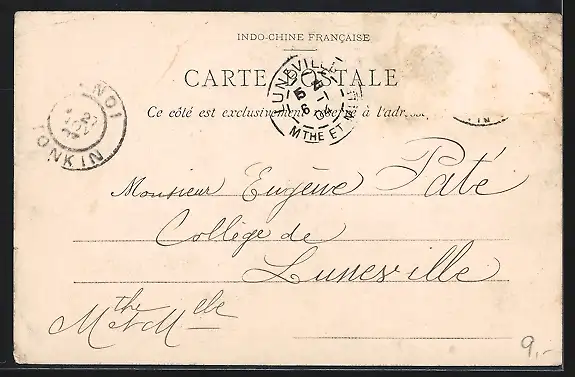 INDO-CHINE FRANÇAISE
CARTE POSTALE
Ce côté est exclusivement réservé à l'adresse.
LUNEVILLE
MTHE ET
TONKIN
Monsieur Eugène Paté
Collège de
Luneville
Mthe et Mlle
9,-